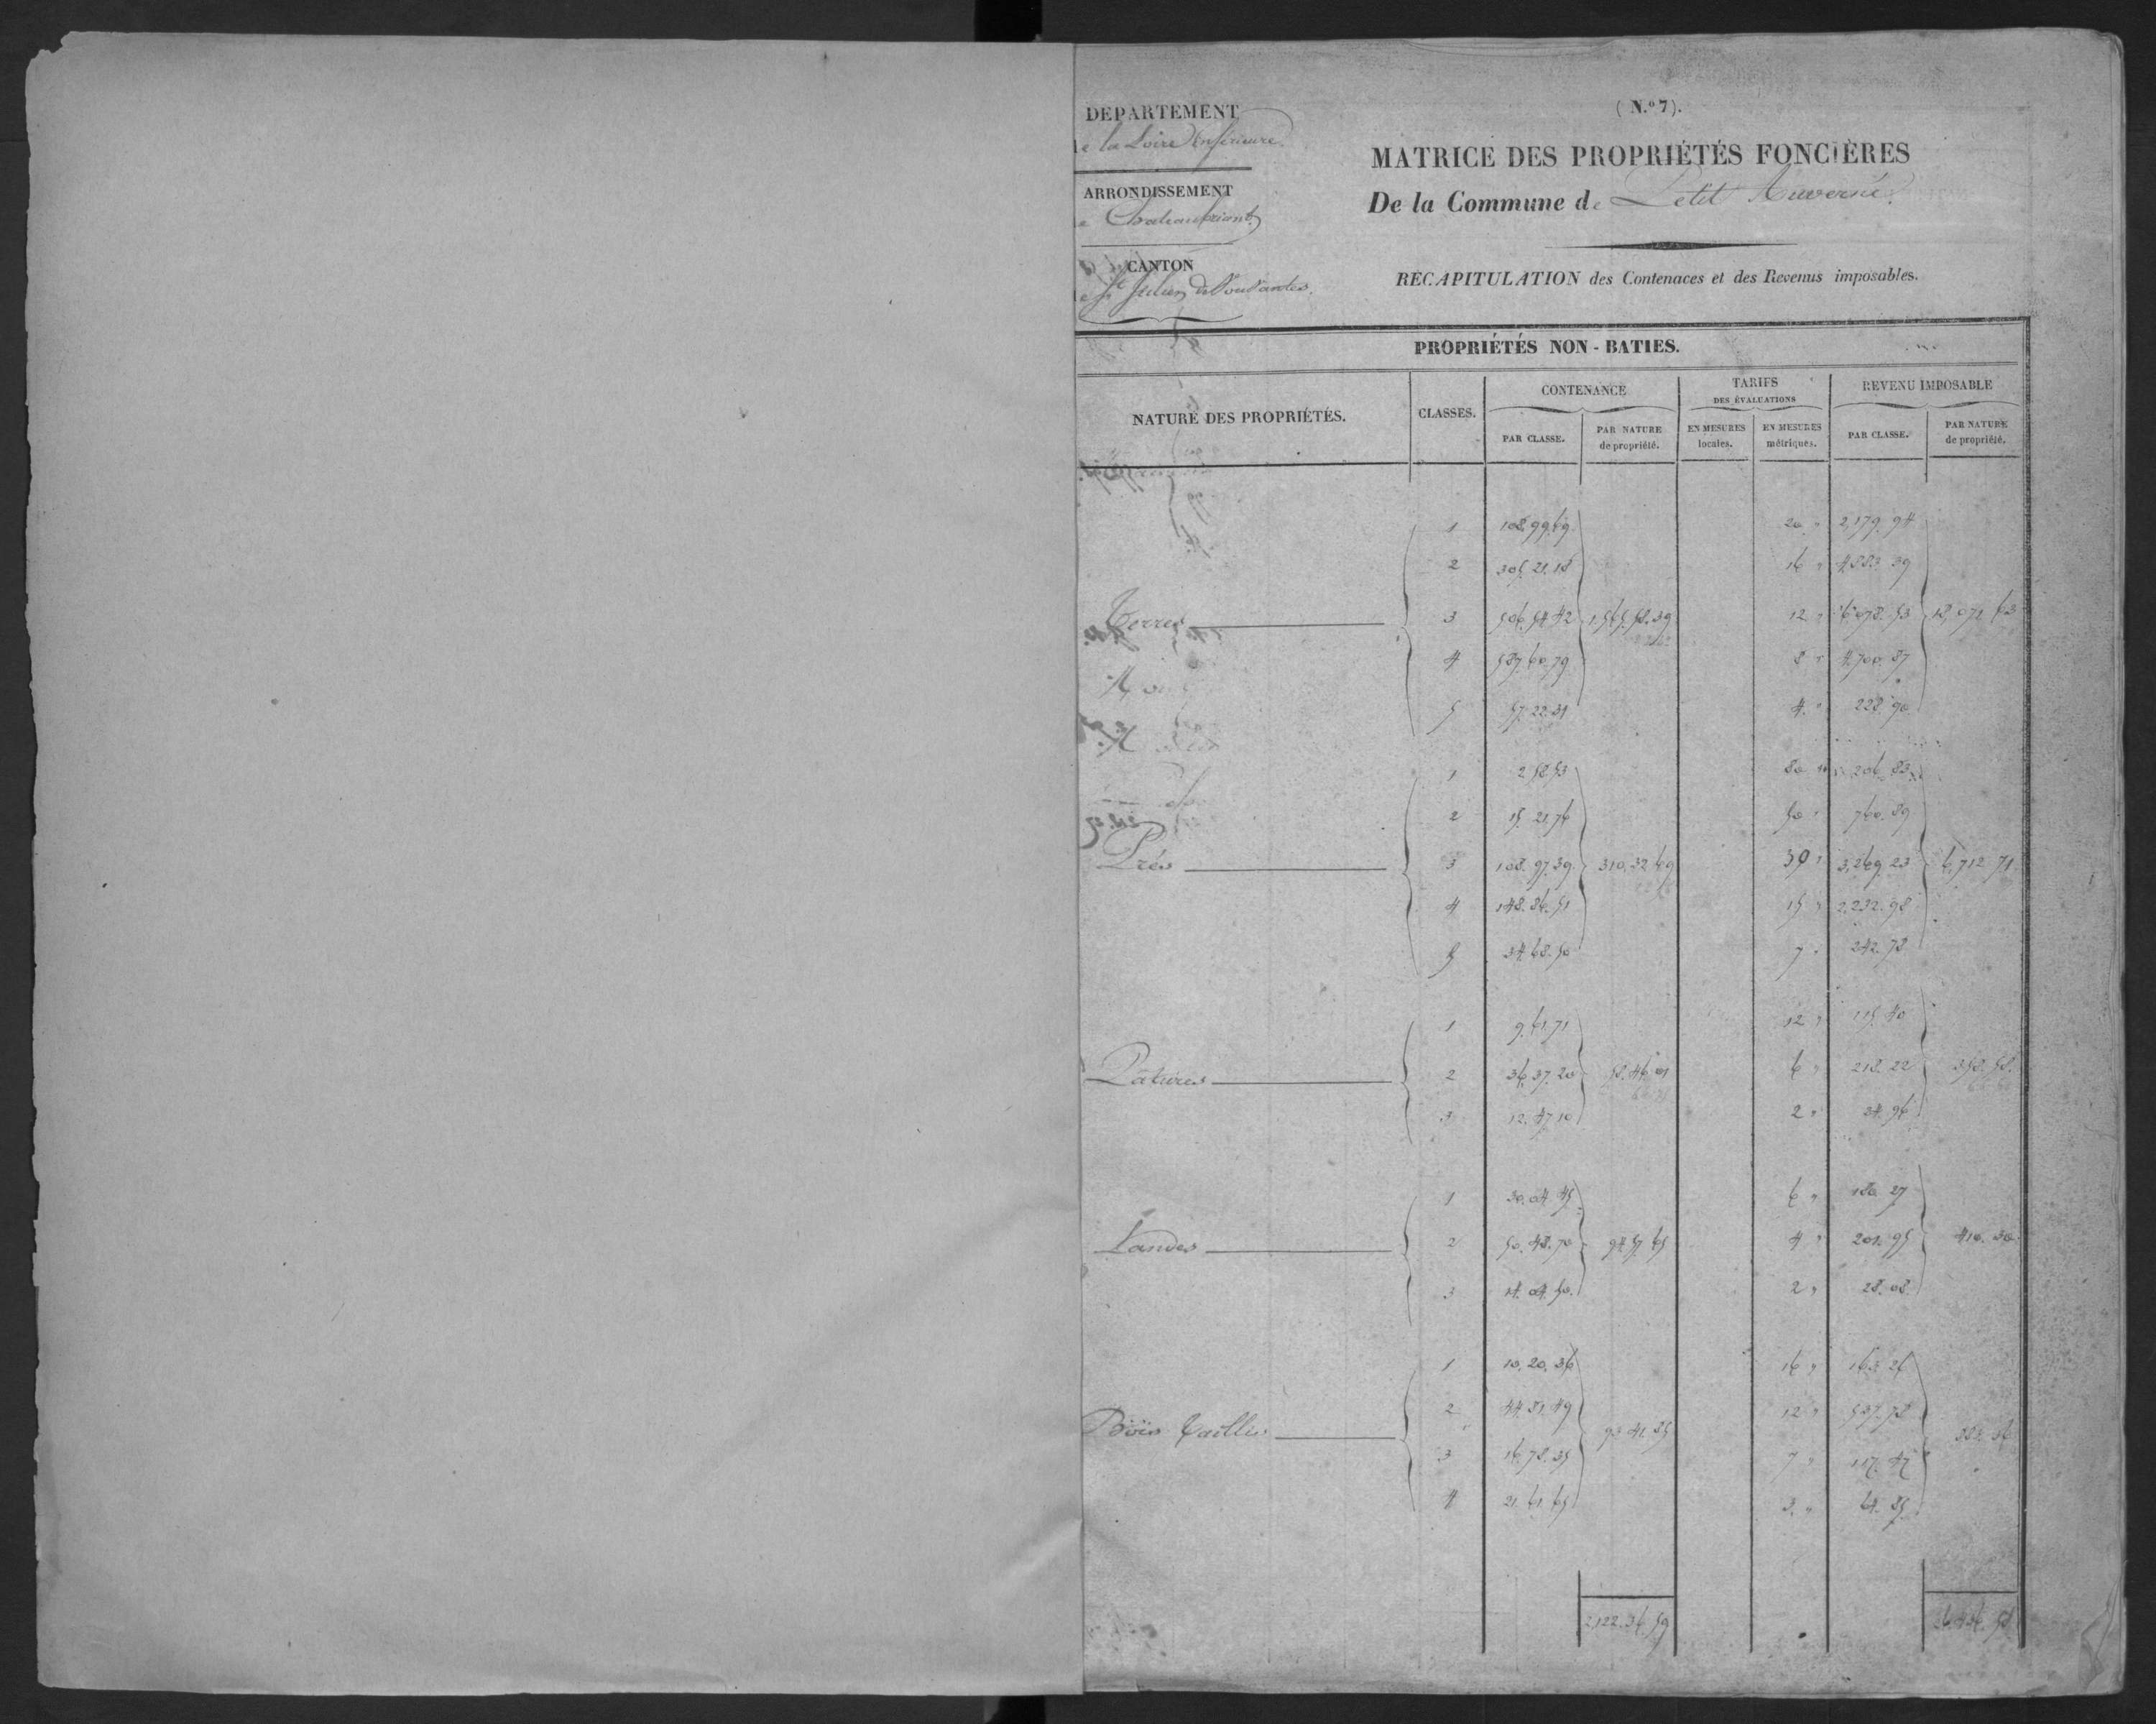 DEPARTEMENT
de la Loire Inférieure
ARRONDISSEMENT
de Chateaubriant
CANTON
de St Julien de Vouvantes.
(N.º 7).
MATRICE DES PROPRIÉTÉS FONCIÈRES
De la Commune de Petit Auverné.
RÉCAPITULATION des Contenaces et des Revenus imposables.
PROPRIÉTÉS NON-BATIES.
NATURE DES PROPRIÉTÉS.
CLASSES.
CONTENANCE
PAR CLASSE.
PAR NATURE
de propriété.
TARIFS
DES ÉVALUATIONS
EN MESURES
locales.
EN MESURES
métriques.
REVENU IMPOSABLE
PAR CLASSE.
PAR NATURE
de propriété.
1 108.99.69 20 " 2,179.94
2 305.21.18 16 " 4,883.39
Terres 3 506.54.42 1,565.58.39 12 " 6,078.53 18,071.63
4 587.60.79 8 " 4,700.87
5 57.22.31 4 " 228.90
1 2.58.53 80 " 206.83
2 15.21.76 50 " 760.89
Prés 3 108.97.39 310.32.69 30 " 3,269.23 6,712.71
4 148.86.51 15 " 2,232.98
5 34.68.50 7 " 242.78
1 9.61.71 12 " 115.40
Pâtures 2 36.37.20 58.46.01 6 " 218.22 358.58
3 12.47.10 2 " 24.96
1 30.04.45 6 " 180.27
Landes 2 50.48.70 94.57.65 4 " 201.95 410.30
3 14.04.50 2 " 28.08
1 10.20.36 16 " 163.26
2 44.81.49 12 " 537.78
Bois taillis 93.41.85 883.36
3 16.78.35 7 " 117.47
4 21.61.65 3 " 64.85
2,122.36.59